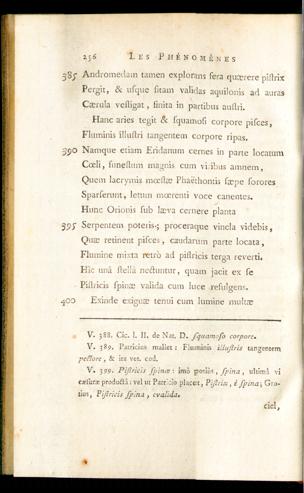 256 LES PHÉNOMÈNES
385 Andromedam tamen explorans fera quærere pistrix
Pergit, & usque sitam validas aquilonis ad auras
Cærula vestigat, finita in partibus austri.
Hanc aries tegit & squamoso corpore pisces,
Fluminis illustri tangentem corpore ripas.
390 Namque etiam Eridanum cernes in parte locatum
Cœli, funestum magnis cum viribus amnem,
Quem lacrymis mœstæ Phaëthontis sæpe sorores
Sparserunt, letum mœrenti voce canentes.
Hunc Orionis sub læva cernere planta
395 Serpentem poteris; proceraque vincla videbis,
Quæ retinent pisces, caudarum parte locata,
Flumine mixta retrò ad pistricis terga reverti.
Hîc unâ stellâ nectuntur, quam jacit ex se
Pistricis spinæ valida cum luce refulgens.
400 Exinde exiguæ tenui cum lumine multæ
V. 388. Cic. l. II. de Nat. D. squamoso corpore.
V. 389. Patricius mallet: Fluminis illustris tangentem
pectore, & ita vet. cod.
V. 399. Pistricis spinæ: imò potiùs, spina, ultimâ vi
cæsuræ productâ: vel ut Patricio placet, Pistrix, è spina; Gro-
tius, Pistricis spina, evalida.
ciel,